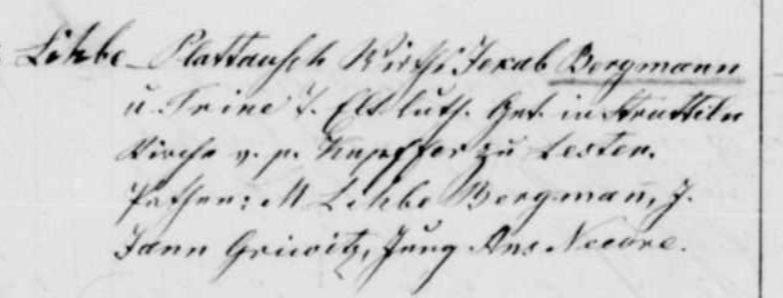 Lihbe Plattausch Wirths Jexab Bergmann
u. Trine T. Elt. luth. Get. in Strutteln
Kirche v. p. Kupffer zu Lesten.
Pathen: M Lihbe Bergmañ, J.
Jann Griwitz, Jung Ans